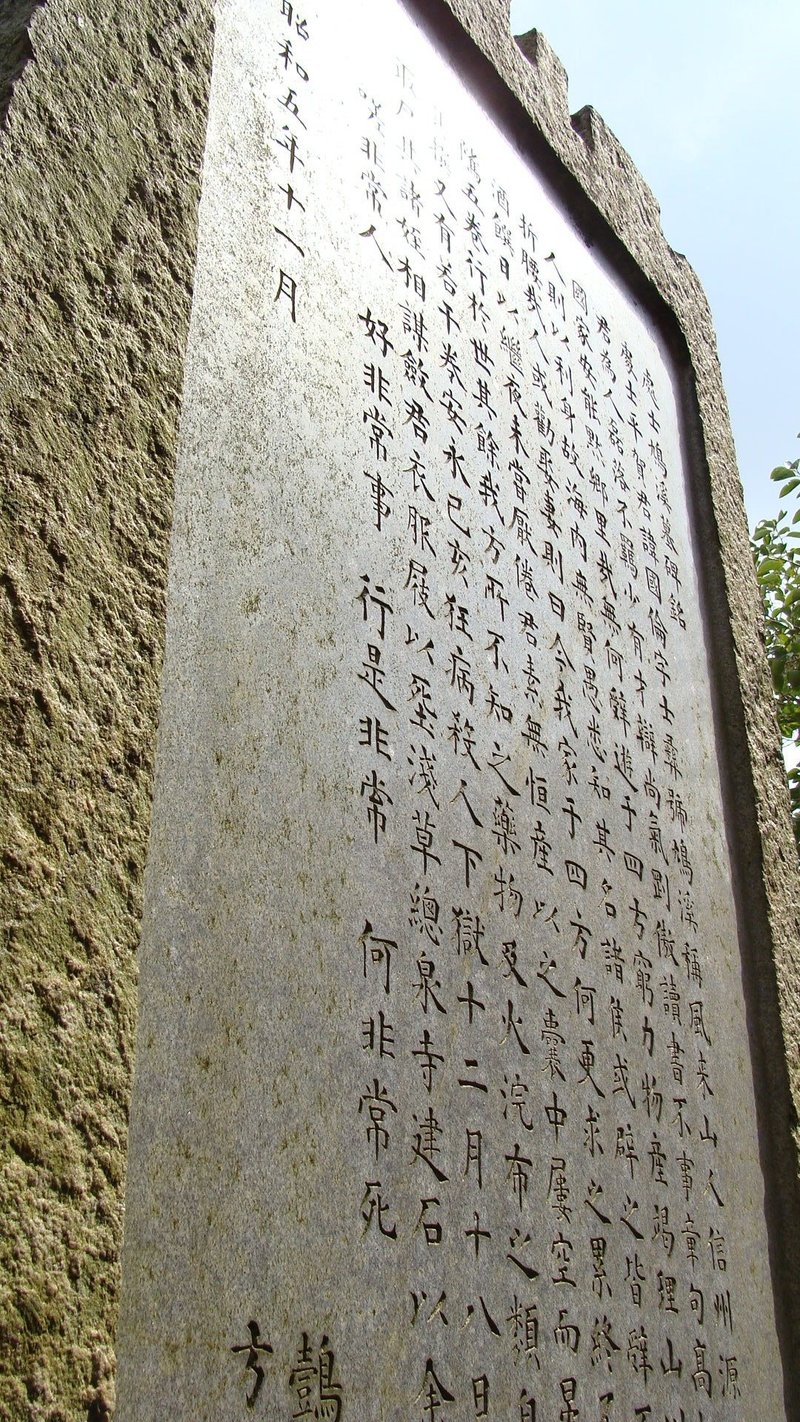 處士鳩溪墓碑銘
處士平賀君諱國倫字士彝號鳩溪稱風来山人信州源
君為人磊落不羈少有才辯尚氣剛傲讀書不事章句高
國家安能默鄉里哉無何辭遊于四方窮力物產竭理山
人則以利身故海内無賢愚悉知其名諸侯或辟之皆辭不
折腰哉人或勸娶妻則曰今我家于四方何更求之累終
酒饌日以繼夜未嘗厭倦君素無恒産以之囊中屢空而晏
隨五卷行於世其餘我方所不知之藥物及火浣布之類自
又有若干卷安永己亥狂病殺人下獄十二月十八日
其諸姪相謀歛君衣服屐以塟淺草總泉寺建石以余
嗟非常人　好非常事　行是非常　何非常死
昭和五年十一月
方